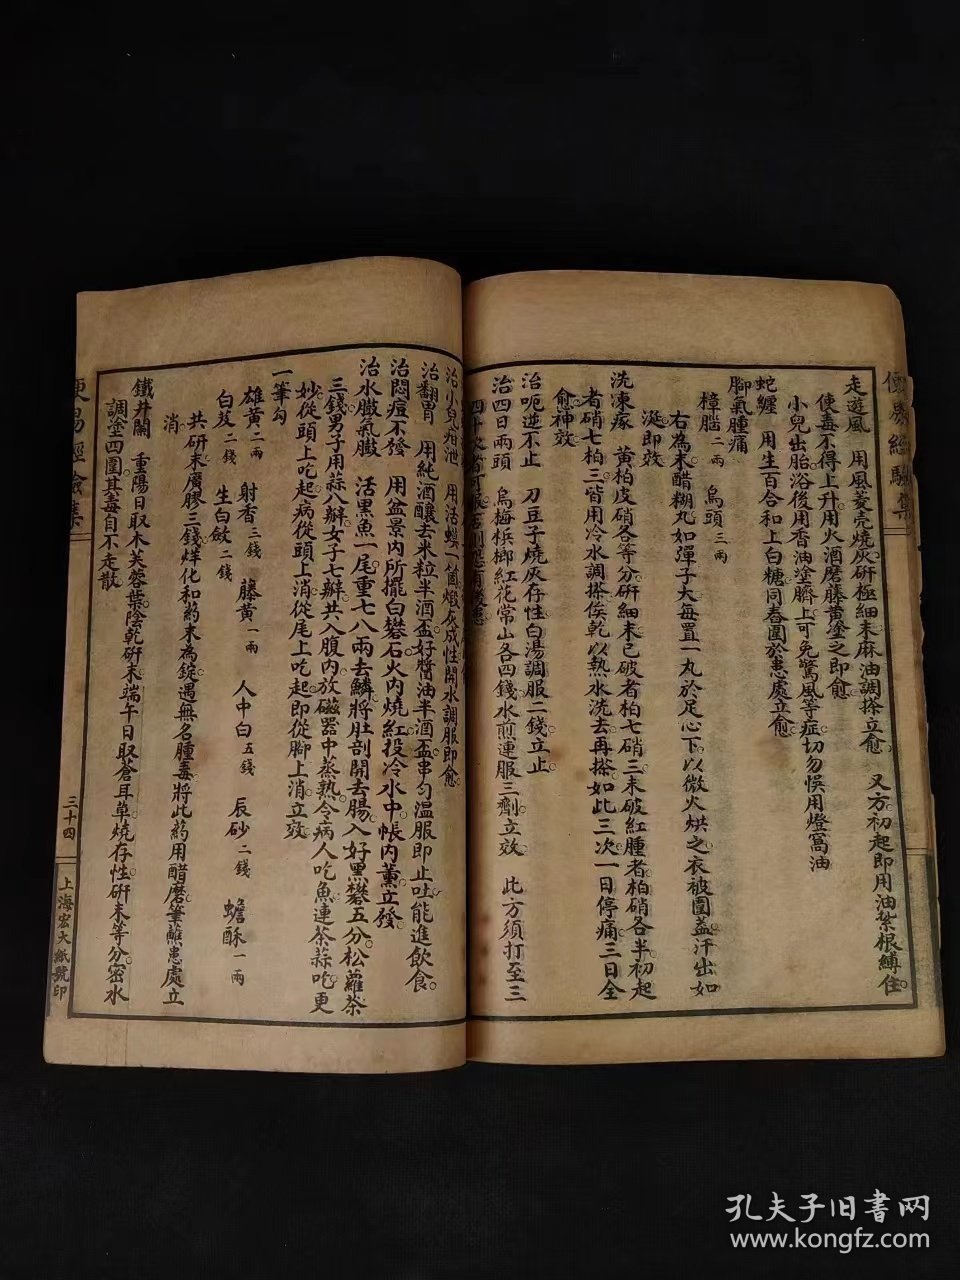 走遊風　用風菱壳燒灰研極細末麻油調搽立愈　又方初起即用油紮根縛住
使毒不得上升用火酒磨藤黄塗之即愈
小兒出胎浴後用香油塗臍上可免驚風等症切勿悞用燈窩油
蛇纏　用生百合和上白糖同舂圍於患處立愈
脚氣腫痛
樟腦二兩　烏頭三兩
右為末醋糊丸如彈子大每置一丸於足心下以微火烘之衣被圍蓋汗出如
涎即效
洗凍瘃　黄柏皮硝各等分研細末已破者柏七硝三未破紅腫者柏硝各半初起
者硝七柏三皆用冷水調搽俟乾以熱水洗去再搽如此三次一日停痛三日全
愈神效
治呃逆不止　刀豆子燒灰存性白湯調服二錢立止
治四日兩頭　烏梅梹榔紅花常山各四錢水煎連服三劑立效　此方須打至三
四十次者可服否則恐有後患
治小兒疳泄　用活蟆一箇煅灰成性開水調服即愈
治翻胃　用純酒釀去米粒半酒盃好醬油半酒盃串勻溫服即止吐能進飲食
治悶痘不發　用盆景內所擺白礬石火內燒紅投冷水中帳內薰立發
治水臌氣臌　活黑魚一尾重七八兩去鱗將肚剖開去腸入好黑礬五分松蘿茶
三錢男子用蒜八瓣女子七瓣共入腹內放磁器中蒸熟令病人吃魚連茶蒜吃更
妙從頭上吃起病從頭上消從尾上吃起即從脚上消立效
一筆勾
雄黄二兩　射香三錢　藤黄一兩　人中白五錢　辰砂二錢　蟾酥一兩
白芨二錢　生白蘞二錢
共研末廣膠三錢烊化和葯末為錠遇無名腫毒將此葯用醋磨筆蘸患處立
消
鐵井闌　重陽日取木芙蓉葉陰乾研末端午日取蒼耳草燒存性研末等分密水
調塗四圍其毒自不走散
便易經驗集
三十四
上海宏大紙號印
孔夫子旧书网
www.kongfz.com